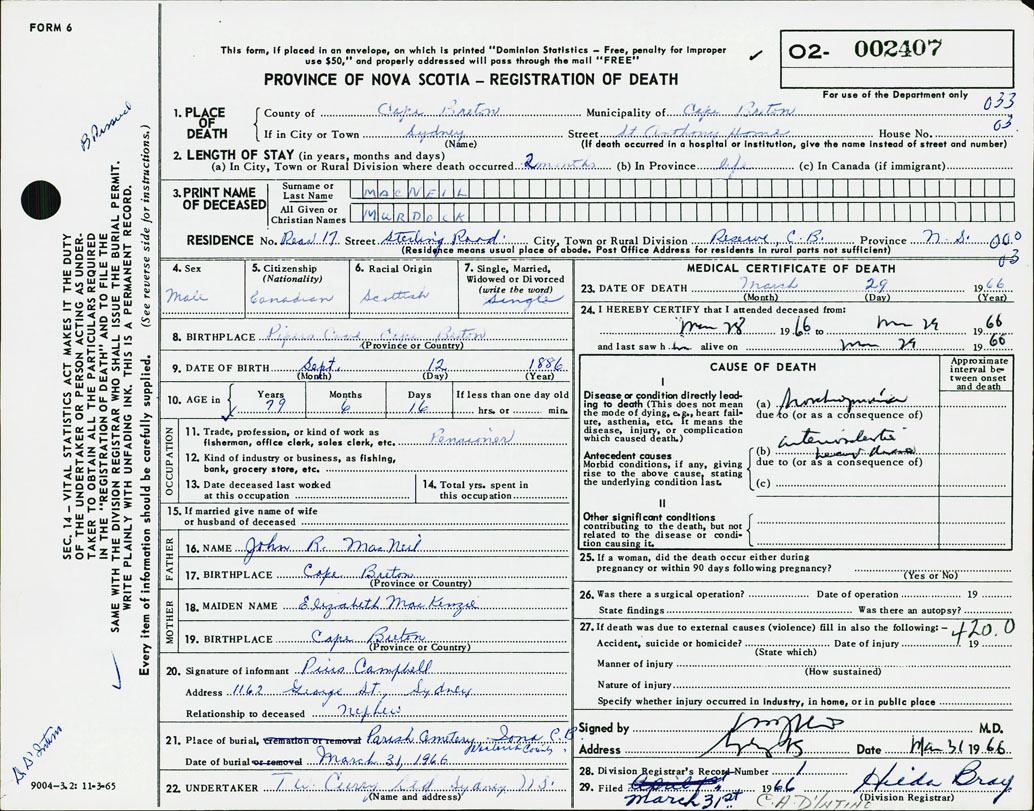 FORM 6
This form, if placed in an envelope, on which is printed "Dominion Statistics – Free, penalty for improper
use $50," and properly addressed will pass through the mail "FREE"
O2- 002407
PROVINCE OF NOVA SCOTIA – REGISTRATION OF DEATH
For use of the Department only
033
03
1. PLACE OF DEATH
County of Cape Breton Municipality of Cape Breton
If in City or Town Sydney Street St Anthony Home House No.
(Name) (If death occurred in a hospital or institution, give name instead of street and number)
2. LENGTH OF STAY (in years, months and days)
(a) In City, Town or Rural Division where death occurred 2 months (b) In Province life (c) In Canada (if immigrant)
3. PRINT NAME OF DECEASED
Surname or Last Name MACNEIL
All Given or Christian Names MURDOCK
RESIDENCE No. 17 Street Sterling Road City, Town or Rural Division Reserve, C.B. Province N.S.
(Residence means usual place of abode. Post Office Address for residents in rural parts not sufficient)
00.0
03
4. Sex Male
5. Citizenship (Nationality) Canadian
6. Racial Origin Scottish
7. Single, Married, Widowed or Divorced (write the word) Single
8. BIRTHPLACE Pipers Cove Cape Breton
(Province or Country)
9. DATE OF BIRTH Sept. 12 1886
(Month) (Day) (Year)
10. AGE in Years 79 Months 6 Days 16 If less than one day old hrs. or min.
OCCUPATION
11. Trade, profession, or kind of work as fisherman, office clerk, sales clerk, etc. Pensioner
12. Kind of industry or business, as fishing, bank, grocery store, etc.
13. Date deceased last worked at this occupation
14. Total yrs. spent in this occupation
15. If married give name of wife or husband of deceased
FATHER
16. NAME John R. MacNeil
17. BIRTHPLACE Cape Breton
(Province or Country)
MOTHER
18. MAIDEN NAME Elizabeth MacKenzie
19. BIRTHPLACE Cape Breton
(Province or Country)
20. Signature of informant Pius Campbell
Address 1162 George St., Sydney
Relationship to deceased Nephew
21. Place of burial, cremation or removal Parish Cemetery Iona C.B
Victoria County
Date of burial or removal March 31, 1966
22. UNDERTAKER Ltd Sydney N.S.
(Name and address)
MEDICAL CERTIFICATE OF DEATH
23. DATE OF DEATH March 29 1966
(Month) (Day) (Year)
24. I HEREBY CERTIFY that I attended deceased from:
Mar 28 1966 to Mar 29 1966
and last saw him alive on Mar 29 1966
CAUSE OF DEATH
Approximate interval between onset and death
I
Disease or condition directly leading to death (This does not mean the mode of dying, e.g., heart failure, asthenia, etc. It means the disease, injury, or complication which caused death.)
(a)
due to (or as a consequence of)
Antecedent causes
Morbid conditions, if any, giving rise to the above cause, stating the underlying condition last.
(b) heart disease
due to (or as a consequence of)
(c)
II
Other significant conditions
contributing to the death, but not related to the disease or condition causing it.
25. If a woman, did the death occur either during pregnancy or within 90 days following pregnancy?
(Yes or No)
26. Was there a surgical operation? Date of operation 19
State findings Was there an autopsy?
27. If death was due to external causes (violence) fill in also the following:– 420.0
Accident, suicide or homicide? Date of injury 19
(State which)
Manner of injury
(How sustained)
Nature of injury
Specify whether injury occurred in industry, in home, or in public place
Signed by M.D.
Address Date Mar 31 1966
28. Division Registrar's Record Number 1
29. Filed March 31st 1966 Hilda Bray
(Division Registrar)
SEC. 14 – VITAL STATISTICS ACT MAKES IT THE DUTY
OF THE UNDERTAKER OR PERSON ACTING AS UNDER-
TAKER TO OBTAIN ALL THE PARTICULARS REQUIRED
IN THE "REGISTRATION OF DEATH" AND TO FILE THE
SAME WITH THE DIVISION REGISTRAR WHO SHALL ISSUE THE BURIAL PERMIT.
WRITE PLAINLY WITH UNFADING INK. THIS IS A PERMANENT RECORD.
Every item of information should be carefully supplied. (See reverse side for instructions.)
9004-3.2: 11-3-65